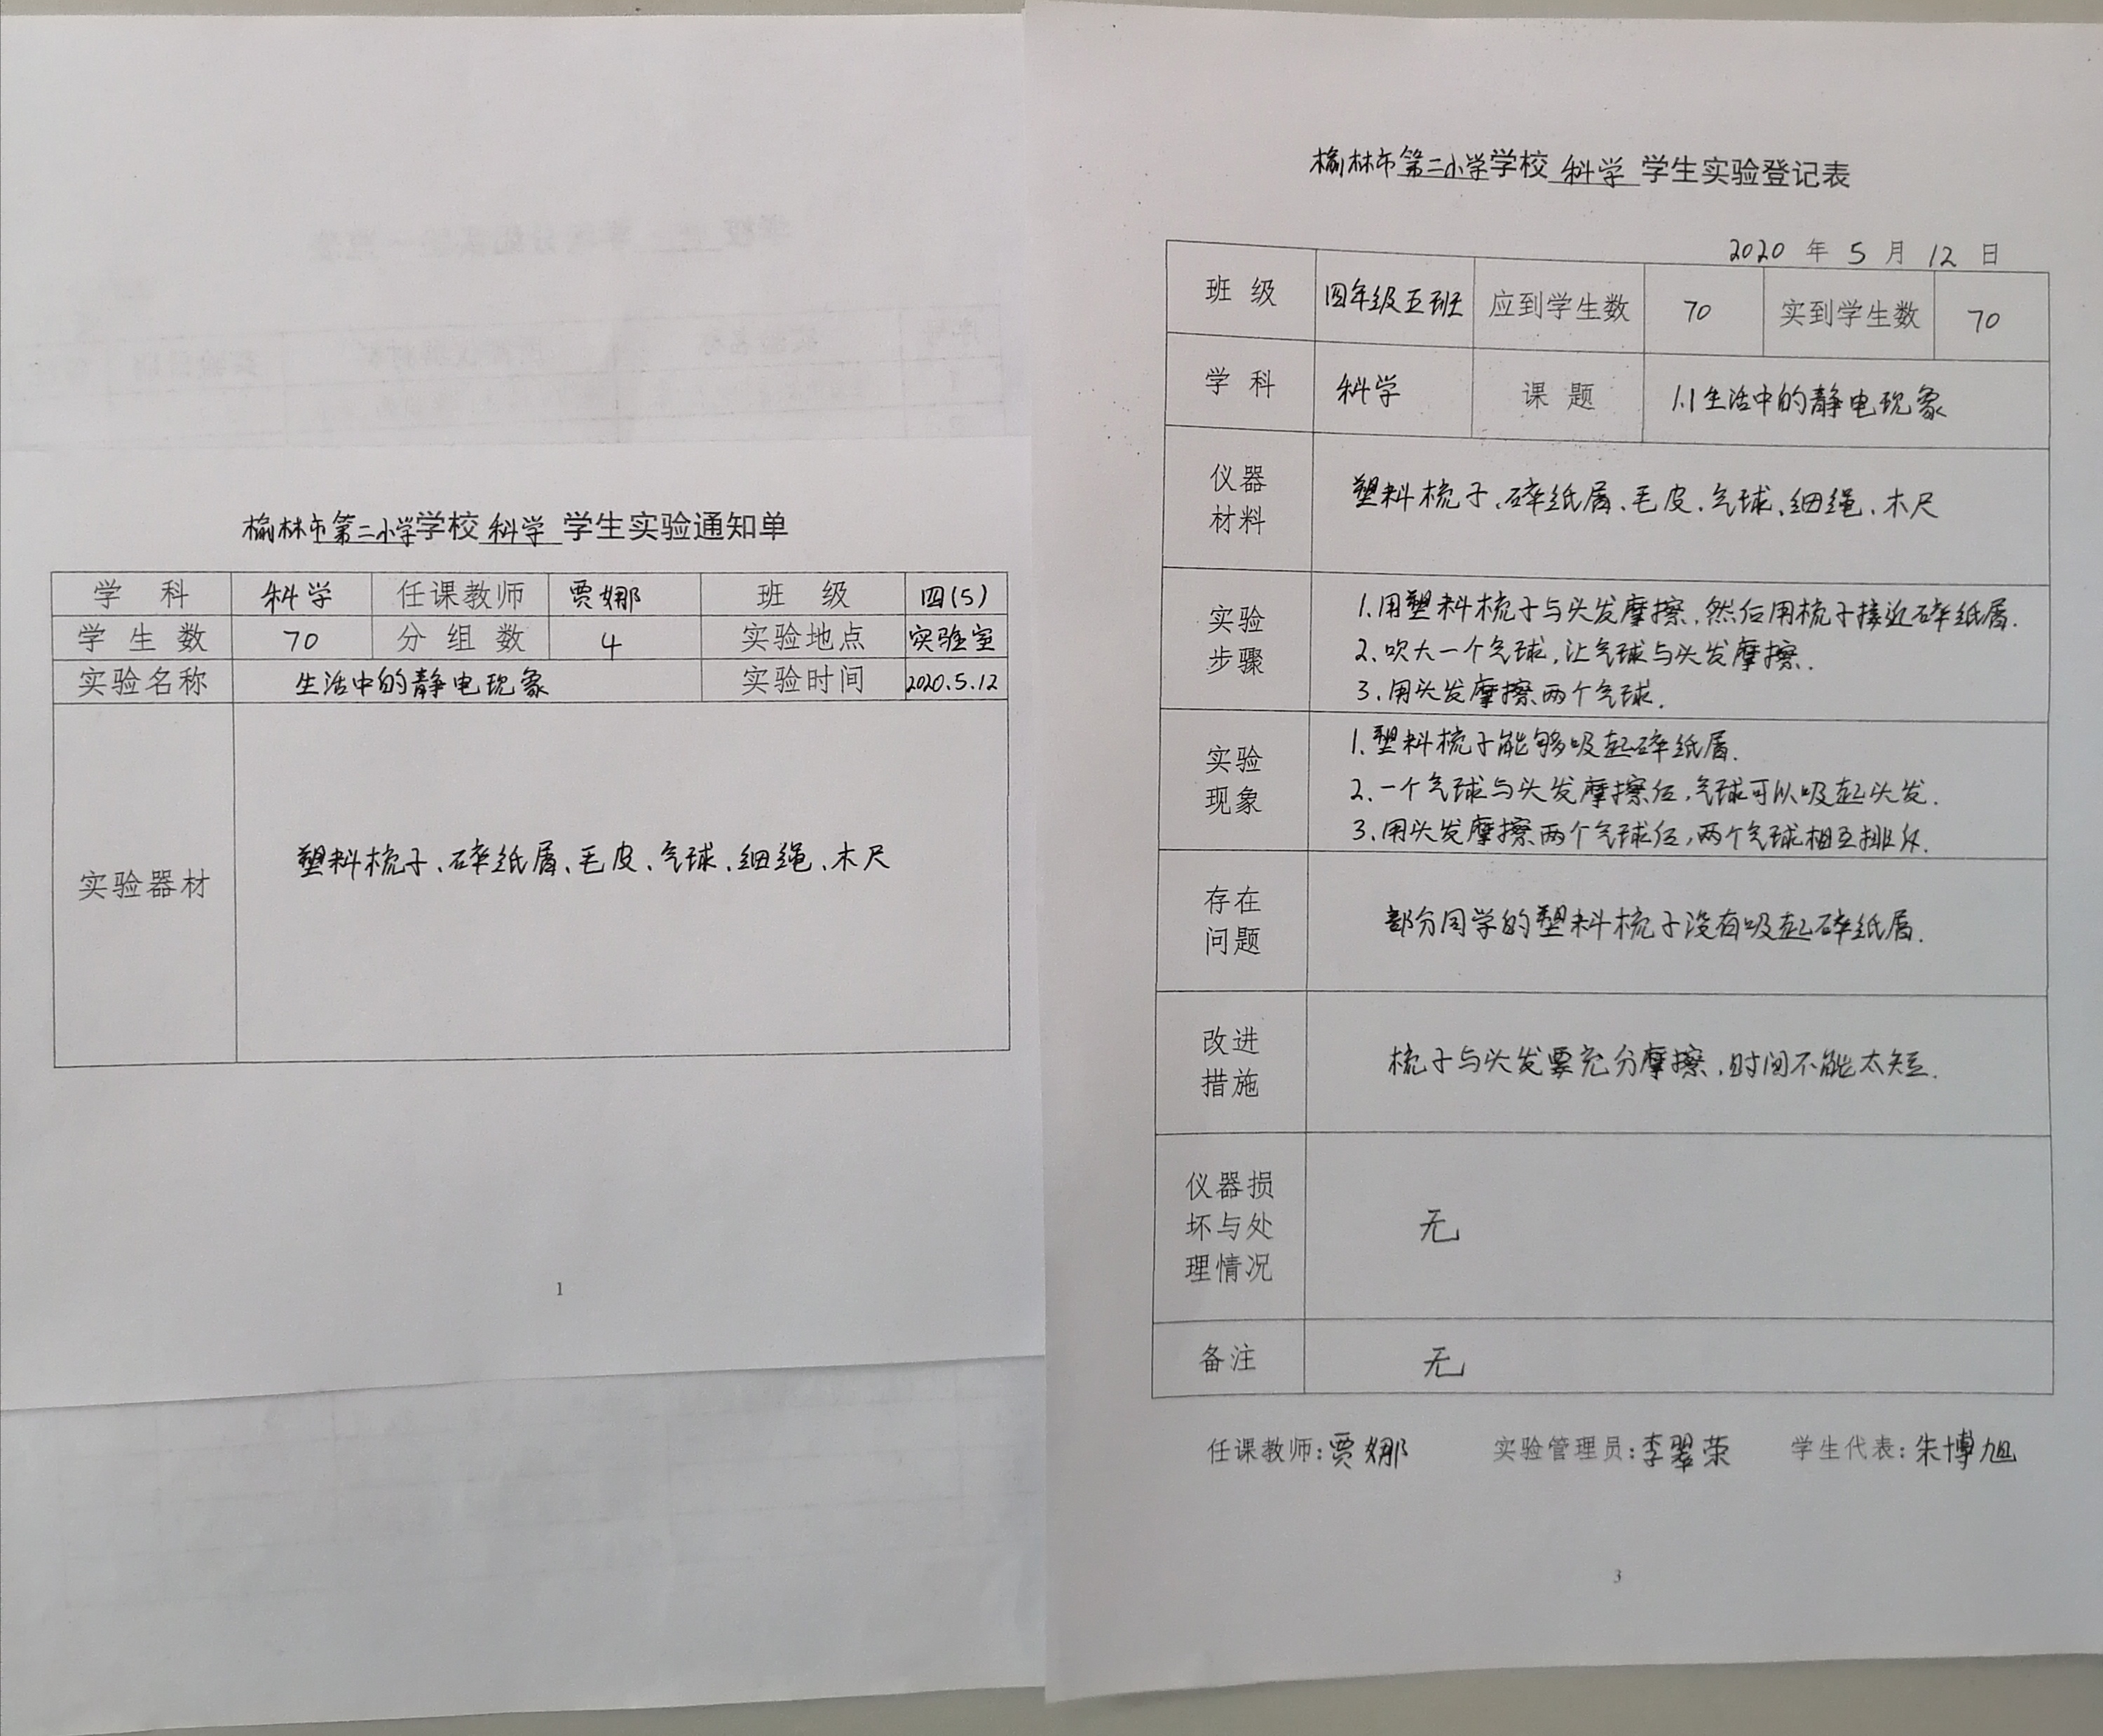 榆林市第二小学学校 科学 学生实验通知单
学 科 科学 任课教师 贾娜 班 级 四(5)
学 生 数 70 分 组 数 4 实验地点 实验室
实验名称 生活中的静电现象 实验时间 2020.5.12
实验器材 塑料梳子、碎纸屑、毛皮、气球、细绳、木尺
1
榆林市第二小学学校 科学 学生实验登记表
2020 年 5 月 12 日
班 级 四年级五班 应到学生数 70 实到学生数 70
学 科 科学 课 题 1.1生活中的静电现象
仪器
材料
塑料梳子、碎纸屑、毛皮、气球、细绳、木尺
实验
步骤
1.用塑料梳子与头发摩擦,然后用梳子接近碎纸屑.
2.吹大一个气球,让气球与头发摩擦.
3.用头发摩擦两个气球.
实验
现象
1.塑料梳子能够吸起碎纸屑.
2.一个气球与头发摩擦后,气球可以吸起头发.
3.用头发摩擦两个气球后,两个气球相互排斥.
存在
问题
部分同学的塑料梳子没有吸起碎纸屑.
改进
措施
梳子与头发要充分摩擦,时间不能太短.
仪器损
坏与处
理情况
无
备注 无
任课教师:贾娜 实验管理员:李翠荣 学生代表:朱博旭
3